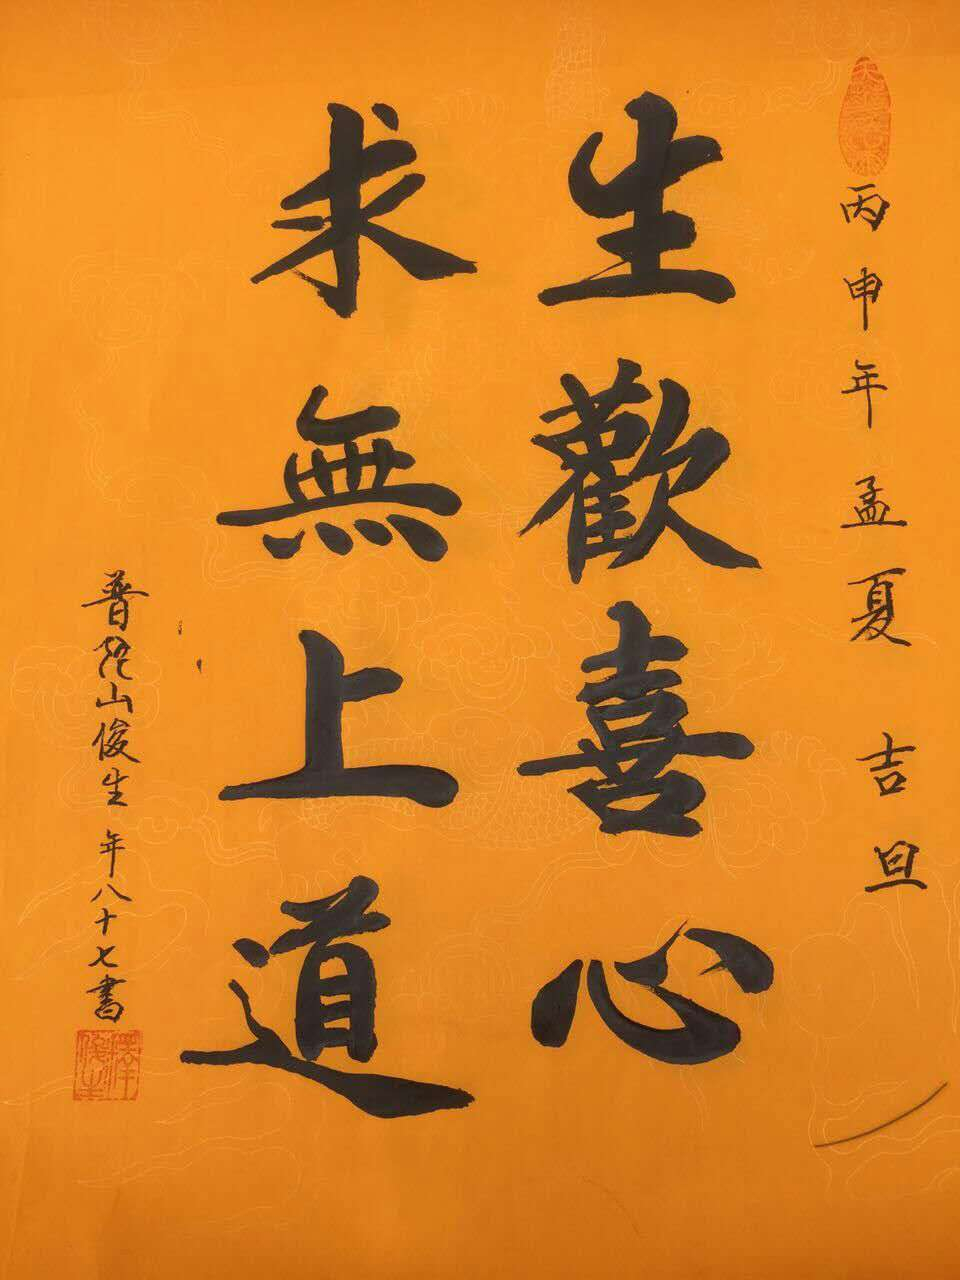 丙申年孟夏 吉旦
生歡喜心
求無上道
普陀山俊生年八十七書